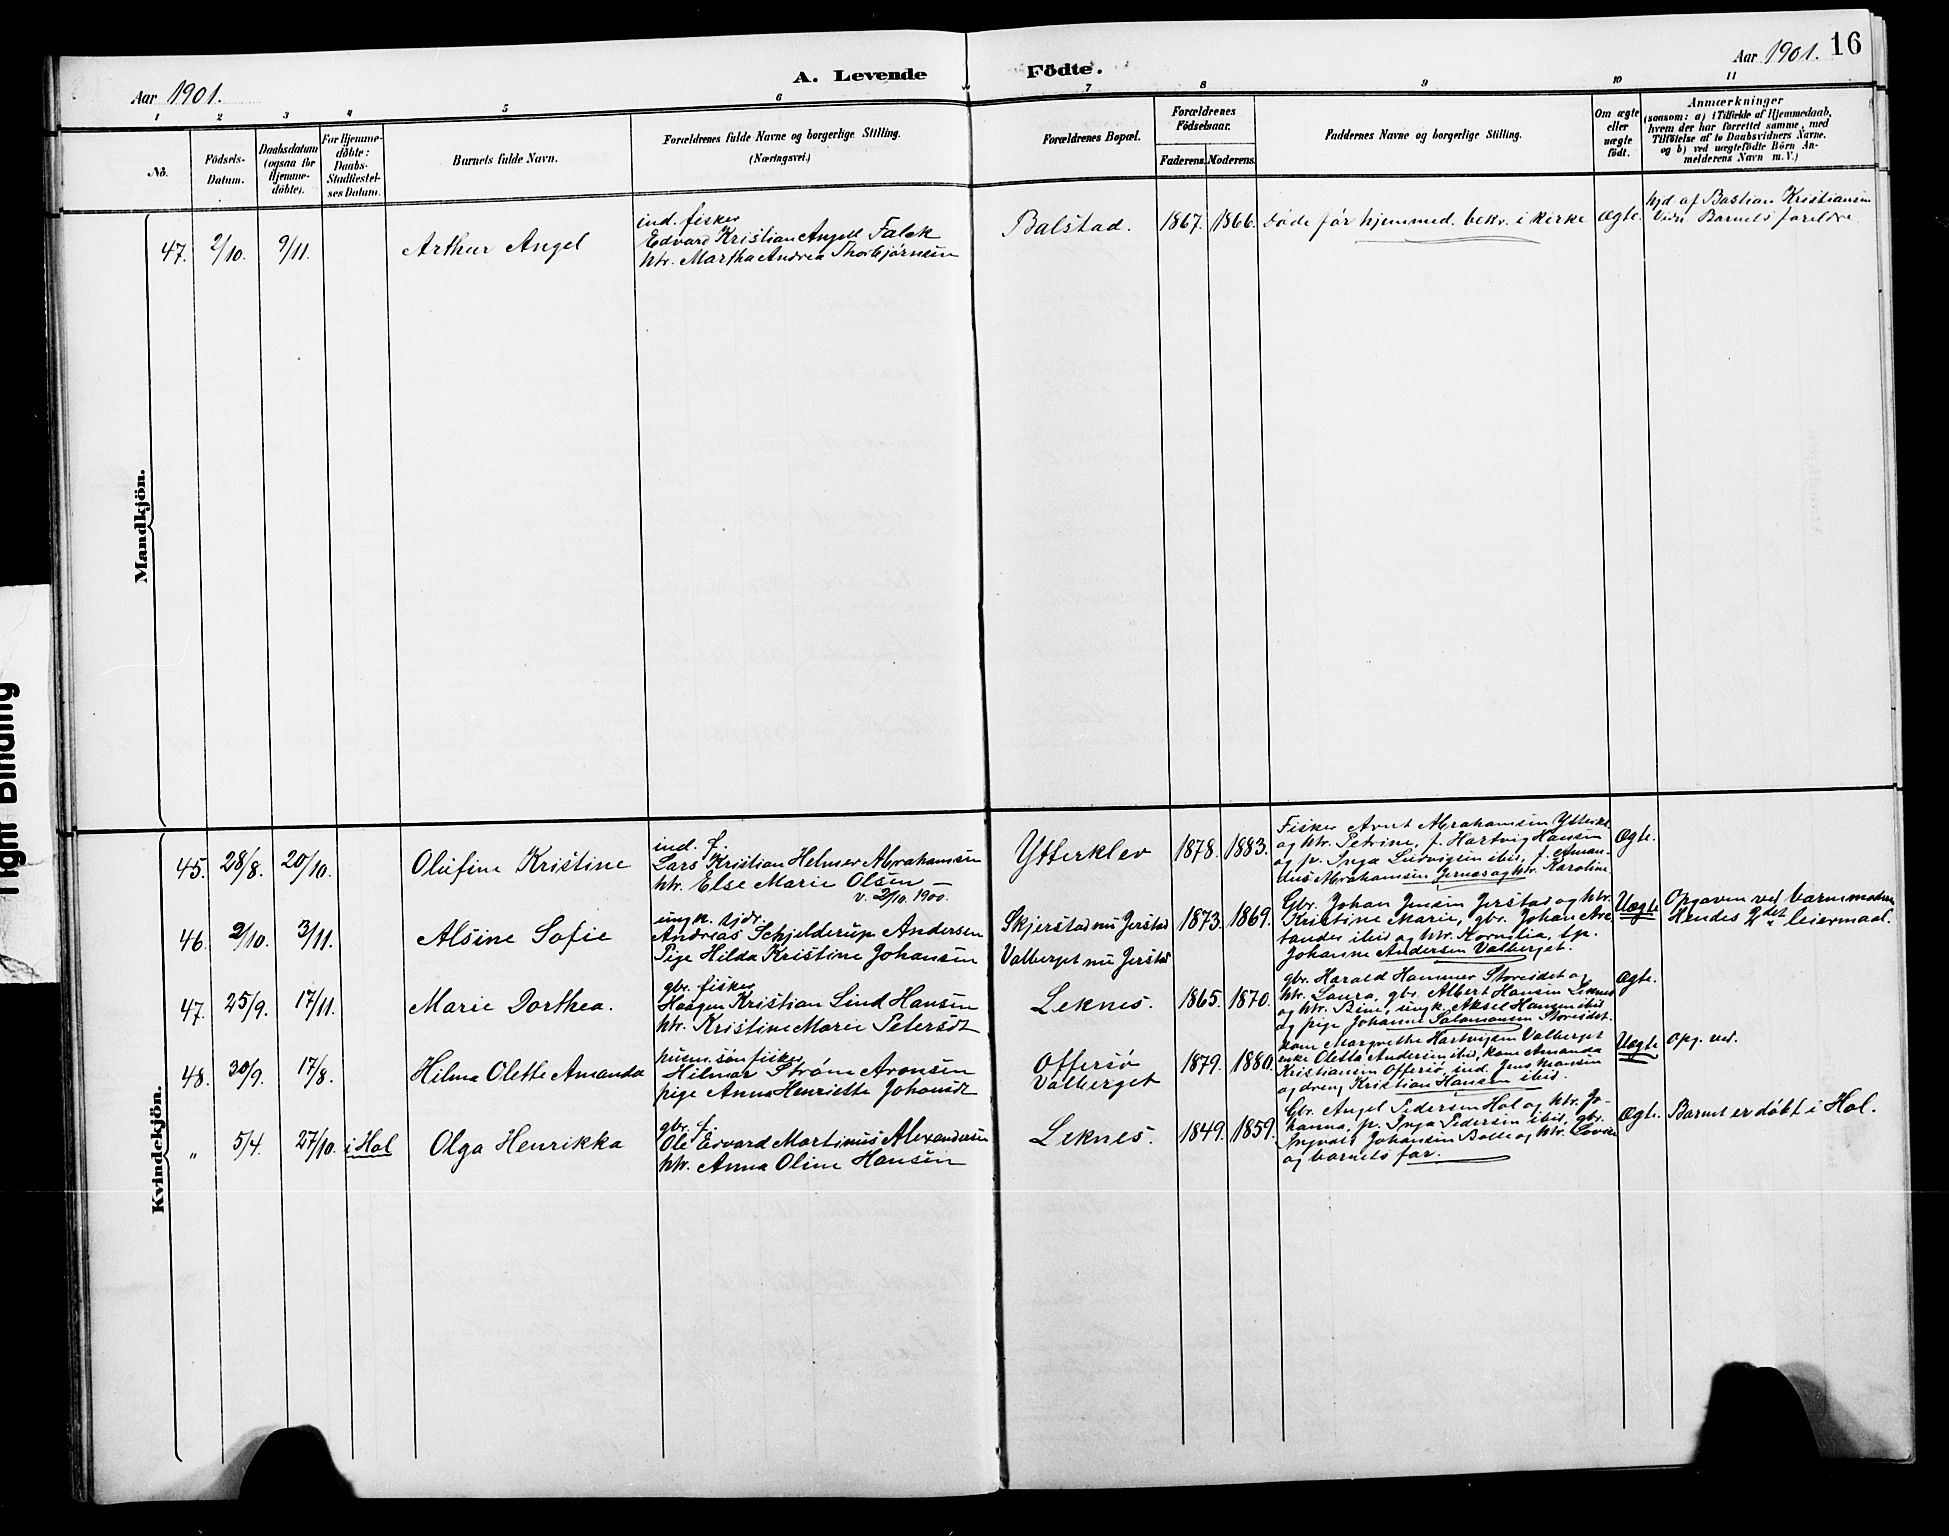 16
Aar 1901.
A. Levende Födte.
Aar 1901.
1 2 3 4 5 6 7 8 9 10 11
No.
Födsels-
Datum.
Daabsdatum
(ogsaa for
Hjemme-
döbte).
For Hjemme-
döbte:
Daabs-
Stadfæstel-
ses Datum.
Barnets fulde Navn.
Forældrenes fulde Navne og borgerlige Stilling.
(Næringsvei.)
Forældrenes Bopæl.
Forældrenes
Födselsaar.
Faderens. Moderens.
Faddernes Navne og borgerlige Stilling.
Om ægte
eller
uægte
födt.
Anmærkninger
(saasom: a) i Tilfælde af Hjemmedaab,
hvem der har forrettet samme, med
Tilföielse af to Daabsvidners Navne.
og b) ved uægtefödte Börn An-
melderens Navn m. V.)
Mandkjön.
47. 2/10. 9/11.
Arthur Angel
ind. fisker
Edvard Kristian Angell Falck
htr. Martha Andrea Thorbjørnsen
Balstad.
1867. 1866.
før hjemmed. bekr. i kirke
Ægte.
hjd af Bastian Kristiansen
Barnets foreldre
Kvindekjön.
45. 28/8. 20/10.
Olufine Kristine
ind. f.
Lars Kristian Helmer Abrahamsen
htr. Else Marie Olsen
v. 2/10. 1900.
Ytterklev
1878. 1883.
Fisker Abrahamsen
og htr. Petrine, f. Hartvig Hansen
og p. Inga Ludvigsen ibid, f. Aman-
dus Abrahamsen og htr. Karoline
Ægte.
46. 2/10. 3/11.
Alsine Sofie
ungk. djdr.
Andreas Schjelderup Andersen
Pige Hilda Kristine Johansen
Skjerstad nu Jerstad
Valberget nu Jerstad
1873. 1869.
Gbr. Johan Jensen Jerstad og htr.
Kristine Marie, gbr. Johan Are-
tander ibid og htr. Kornelia, tp.
Johanne Andersen Valberget.
Uægte
Opgaven ved barnemoderen
Kendes 2det leiermaal.
47. 25/9. 17/11.
Marie Dorthea.
gbr. fisker
Haagen Kristian Lind Hansen
htr. Kristine Marie Petersdt
Leknes.
1865. 1870.
gbr. Harald Hammer Storeidet og
htr. Laura, gbr. Albert Hansen Leknes
og htr. Bine, ungk. Aksel Hansen ibid
og pige Johanne Salamonsen Storeidet.
Ægte.
48. 30/9. 17/8.
Hilma Olette Amanda
pusm. søn fisker
Hilmar Strøm Aronsen
pige Anna Henriette Johansdt
Offersø
Valberget
1879. 1880.
kone Margrethe Hartvigsen Valberget
enke Oletta Andersen ibid, kone Amanda
Kristiansen Offersø, ind. Jens Hansen
og dreng Kristian Hansen ibid.
Uægte
opg. ved.
" 5/4. 27/10. i Hol
Olga Henrikka
gbr. f.
Ole Edvard Martinus Alexandersen
htr. Anna Oline Hansen
Leknes.
1849. 1859.
Gbr. Angel Pedersen Hol og htr. Jo-
hanna, p. Inga Pedersen ibid, gbr.
Ingvart Johansen Bolle og htr.
og barnets far.
Ægte.
Barnet er døbt i Hol.
Tight Binding